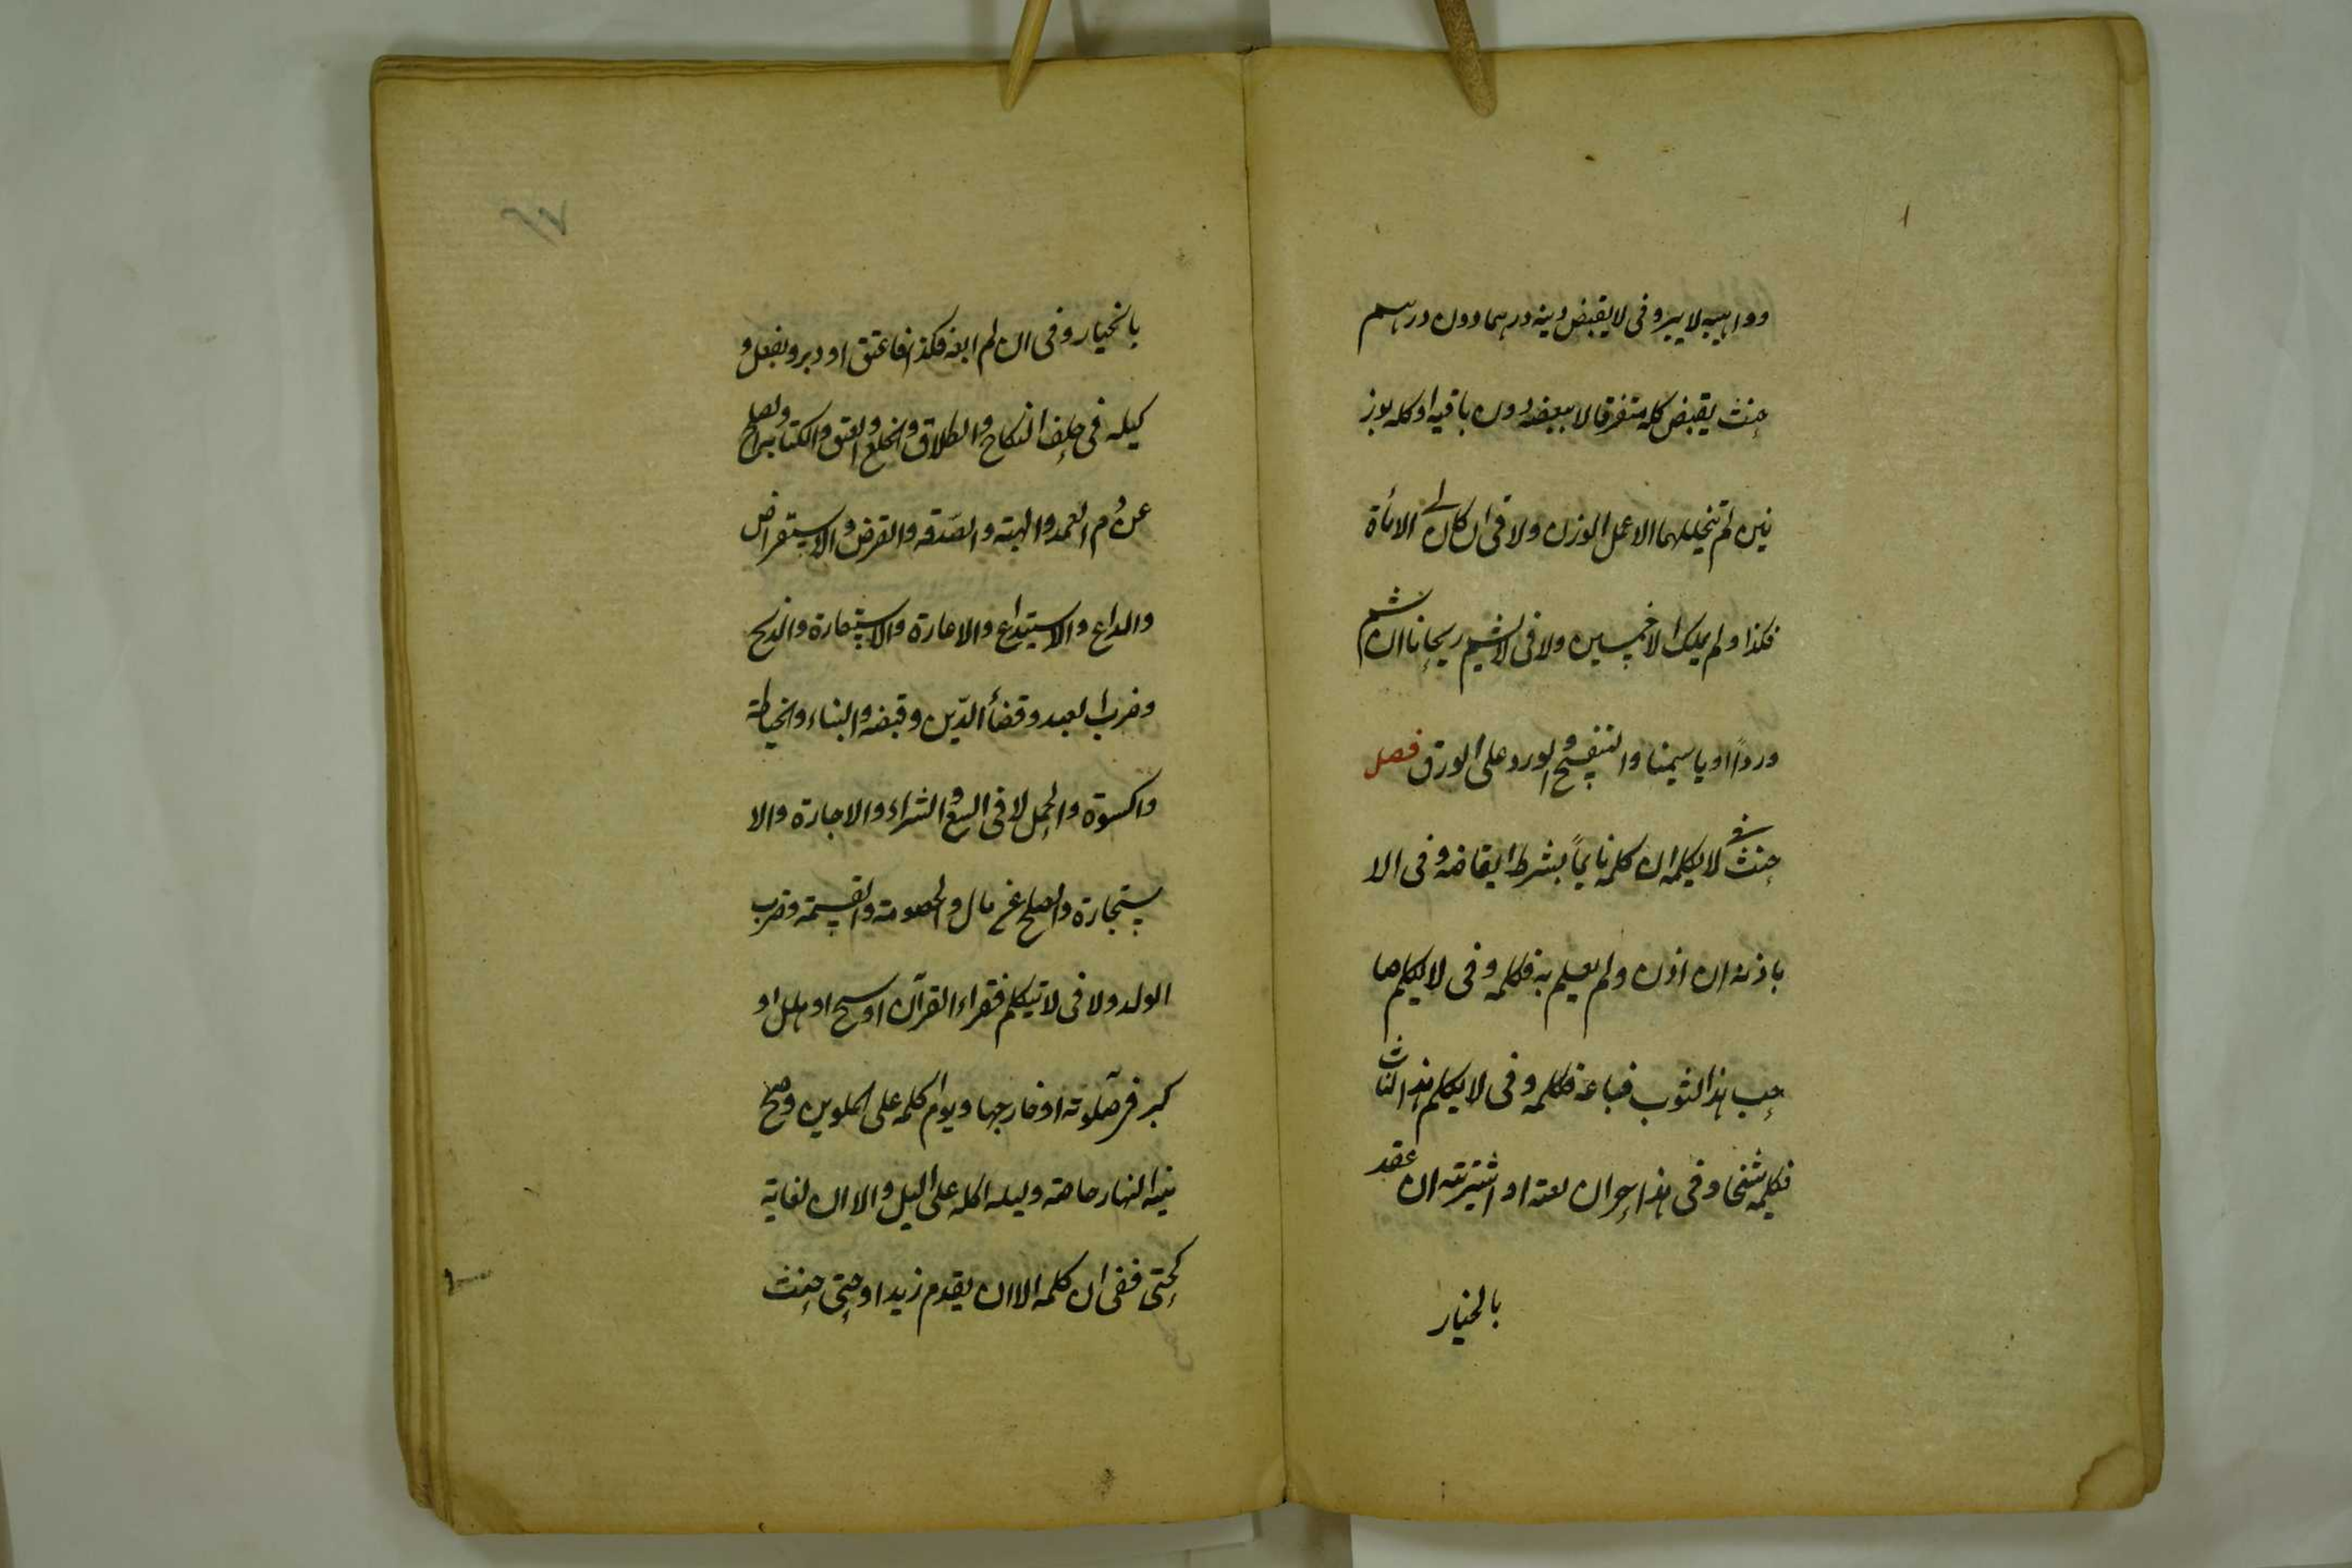 ووا هبيه لا يبر وفى لا يقبض دينه درهما دون درهم
حنث يقبض كله متفرقا لا ببعضه دون باقيه او كله بوز
نين لم يتخللهما الا عمل الوزن ولا فى ان كان لى الا مأة
فكذا ولم يملك الا خمسين ولا فى لا يشم ريحانا ان شم
وردًا او ياسمينا والبنفسج والورد على الورق فصل
حنث فى لا يكلمه ان كلمه نايمًا بشرط ايقاظه وفى الا
باذنه ان اذن ولم يعلم به فكلمه وفى لا يكلم صا
حب هذا الثوب فباعه فكلمه وفى لا يكلم هذا الشاب
فكلمه شيخا وفى هذا حر ان بعته او اشتريته ان عقد
بالخيار
بالخيار وفى ان لم ابعه فكذا فاعتق او دبر وبفعل و
كيله فى حلف النكاح والطلاق والخلع والعتق والكتابة والصلح
عن دم العمد والهبة والصدقه والقرض والاستقراض
والداع والاستيداع والاعارة والاستعارة والذبح
وضرب العبد وقضأ الدّين وقبضه والبناء والخياطة
واكسوة والحمل لا فى البيع والشراء والاجارة والا
ستجارة والصلح عن مال والخصومة والقسمة وضرب
الولد ولا فى لا تيكلم فقراء القرآن او سبح او هلل او
كبر فى صلوته او خارجها ويوم اكلمه على الملوين وصح
نية النهار خاصة وليلة اكلمه على اليل والا ان لغاية
كحتى ففى ان كلمه الا ان يقدم زيد او حتى حنث